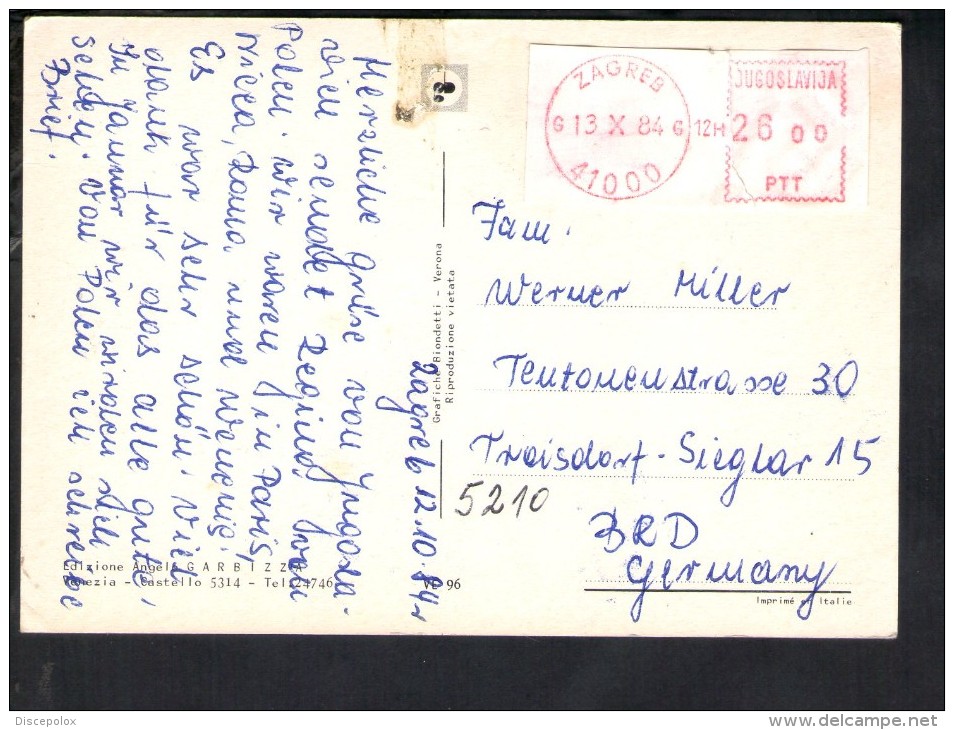 Zagreb 12.10.84r
Herzliche Grüse von Jugosla-
wien sendet Regina von
Polen. Wir waren in Paris,
Nicea, Roma und Wenecji.
Es war sehr schön. Viel
dank für das alle gute,
In Januar wir
sehen. Von Polen ich schreibe
Brief.
ZAGREB
G 13 X 84 G 12H
41000
JUGOSLAVIJA
26 00
PTT
Fam.
Werner Miller
Tentonenstrasse 30
Troisdorf-Sieglar 15
5210
BRD
Germany
Grafiche Biondetti - Verona
Riproduzione vietata
Edizione Angelo GARBIZZA
Venezia - Castello 5314 - Tel. 24746
VE 96
Imprimé en Italie
Discepolox
delcampe.net